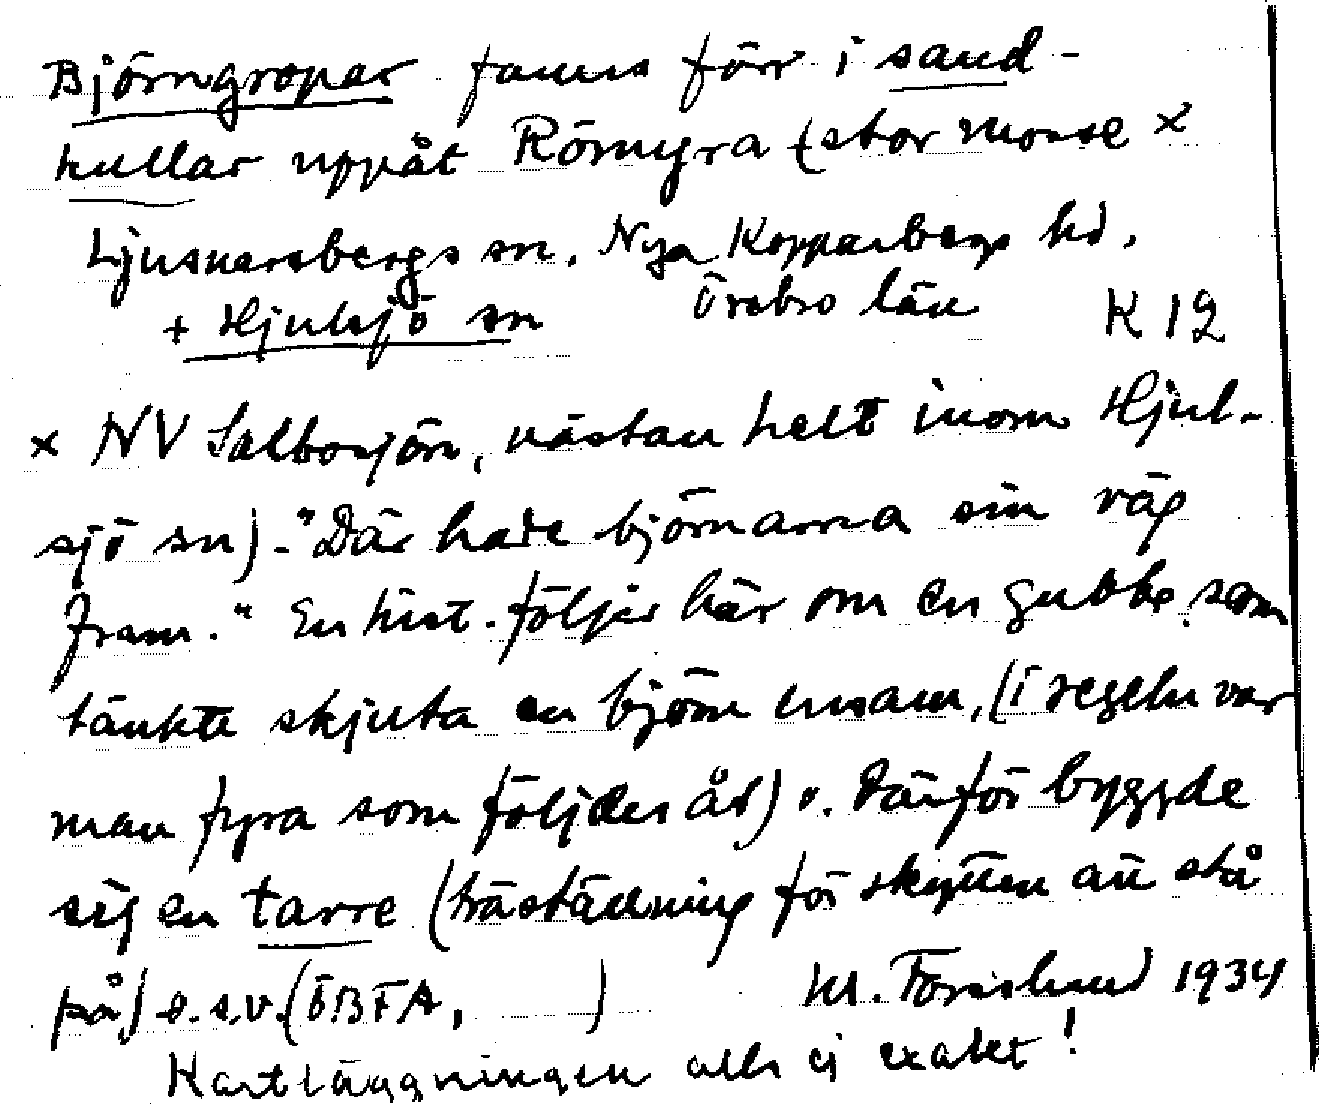 Björngropar fanns förr i sand-
kullar uppåt Römyra (stor mosse x
Ljusnarsbergs sn, Nya Kopparbergs hd,
+ Hjulsjö sn Örebro län K 12
x NV Salbosjön, nästan helt inom Hjul-
sjö sn). "Där hade björnarna sin väg
fram." En hist. följer här om en gubbe, som
tänkte skjuta en björn ensam, (i regeln var
man fyra som följdes åt) o. därför byggde
sig en tarre (träställning för skytten att stå
på) o.s.v. (ÖBFA, ) M. Forslund 1934
Kartläggningen alls ej exakt!